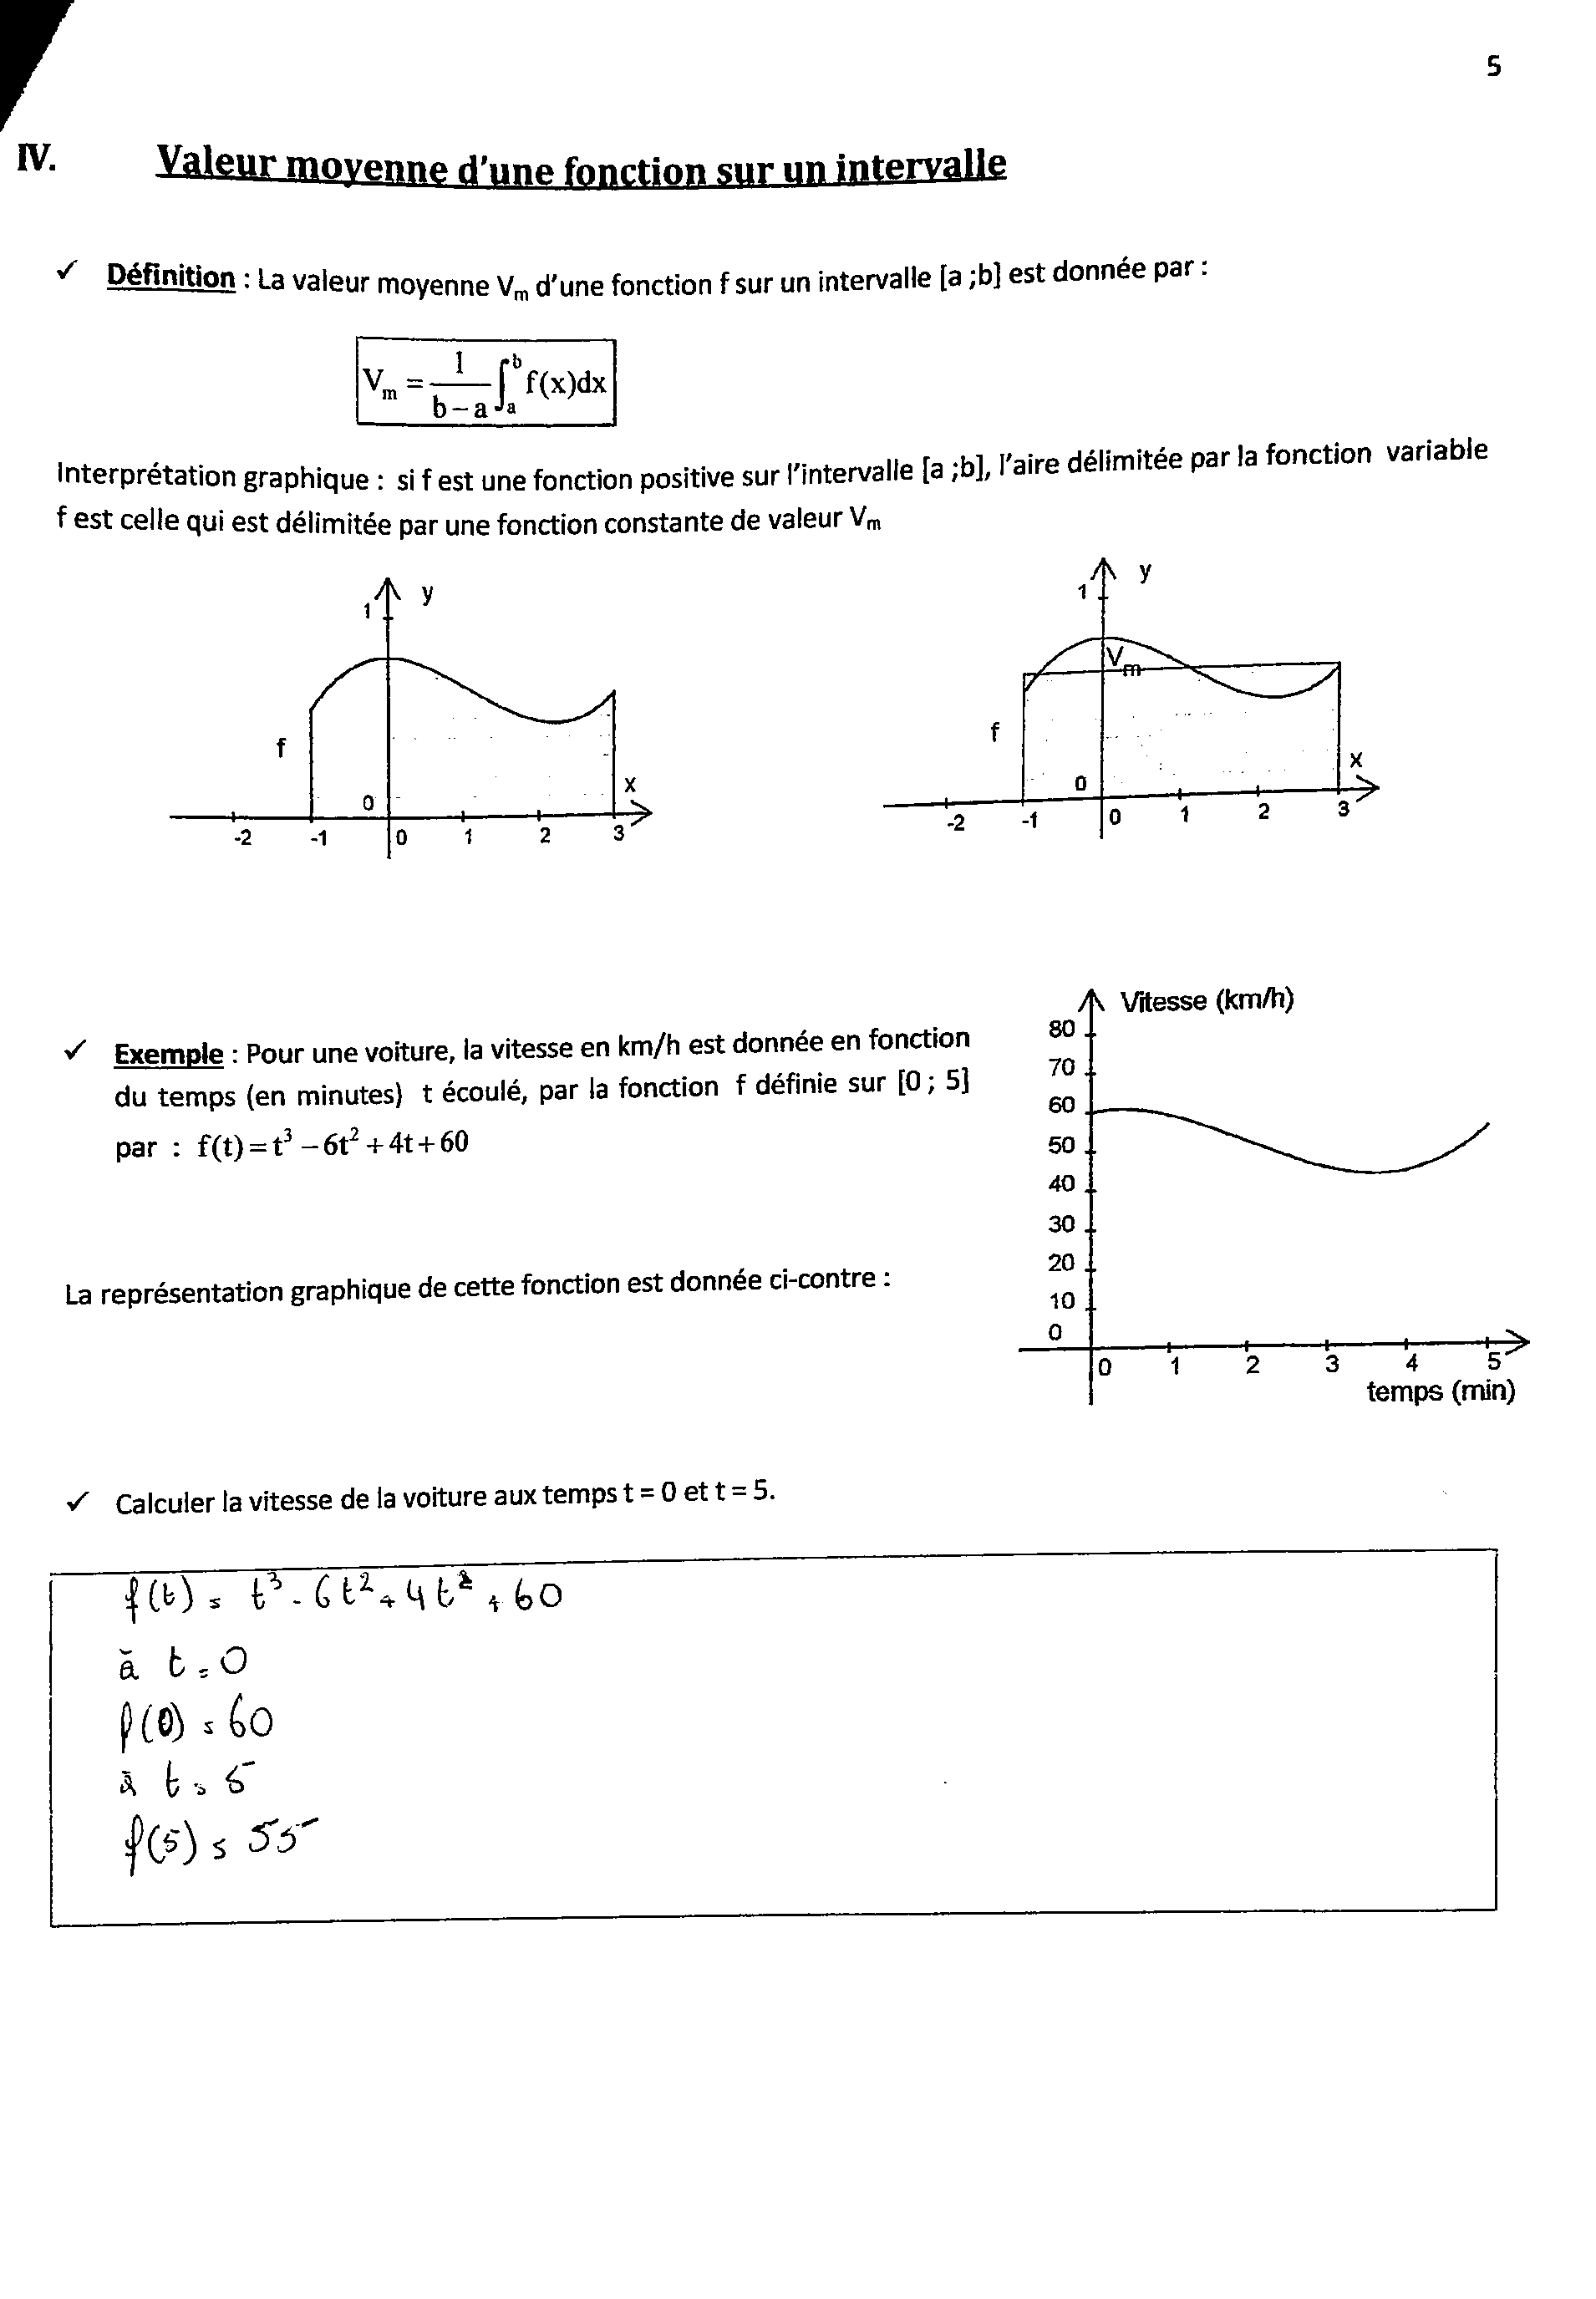 5
IV. Valeur moyenne d'une fonction sur un intervalle
✓ Définition : La valeur moyenne Vₘ d'une fonction f sur un intervalle [a ;b] est donnée par :
Vₘ = 1/(b−a) ∫ₐᵇ f(x)dx
Interprétation graphique : si f est une fonction positive sur l'intervalle [a ;b], l'aire délimitée par la fonction variable
f est celle qui est délimitée par une fonction constante de valeur Vₘ
1 y
f
0 x
-2 -1 0 1 2 3
1 y
Vₘ
f
0 x
-2 -1 0 1 2 3
✓ Exemple : Pour une voiture, la vitesse en km/h est donnée en fonction
du temps (en minutes) t écoulé, par la fonction f définie sur [0 ; 5]
par : f(t) = t³ − 6t² + 4t + 60
La représentation graphique de cette fonction est donnée ci-contre :
Vitesse (km/h)
80
70
60
50
40
30
20
10
0
0 1 2 3 4 5
temps (min)
✓ Calculer la vitesse de la voiture aux temps t = 0 et t = 5.
f(t) = t³ - 6t² + 4t² + 60
à t = 0
f(0) = 60
à t = 5
f(5) = 55